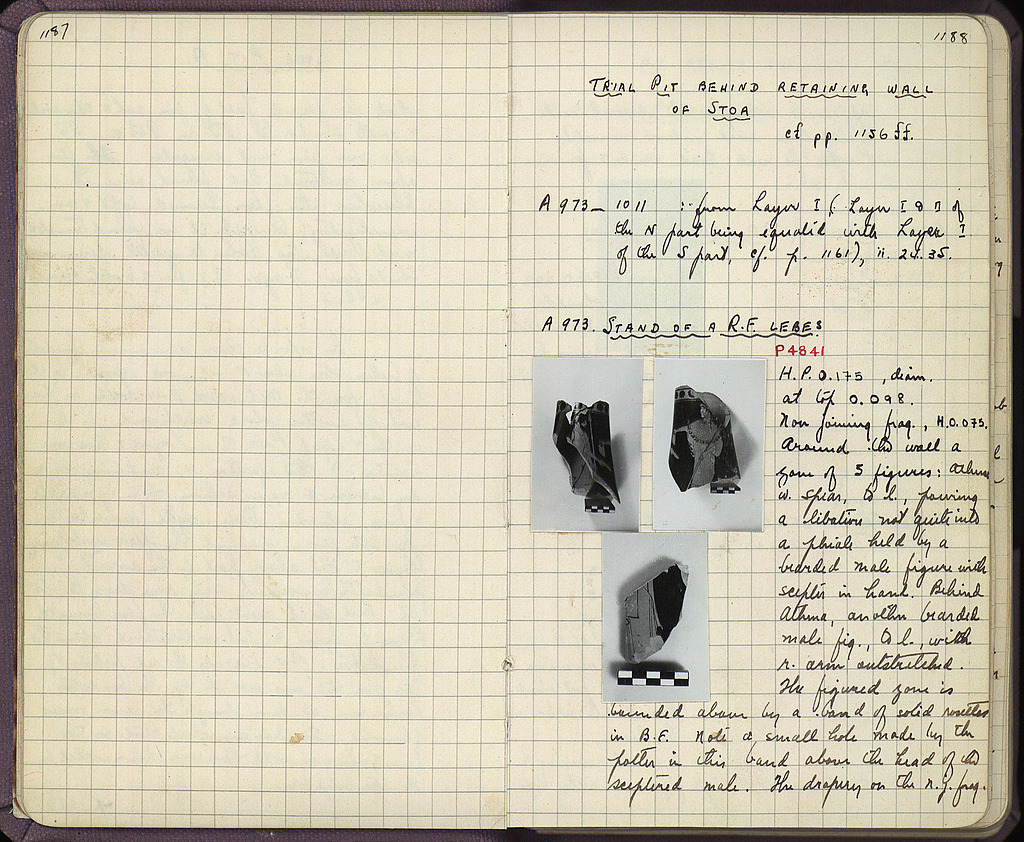 1187
1188
TRIAL PIT BEHIND RETAINING WALL
OF STOA
cf pp. 1156ff.
A 973 – 1011 : from Layer I (Layer I & II of
the N part being equated with Layer I
of the S part, cf. p. 1161), ii. 24.35.
A 973. STAND OF A R.F. LEBES
P4841
H.P. 0.175, diam.
at top 0.098.
Non joining frag., H.0.075.
Around the wall a
zone of 5 figures: Athena
w. spear, to l., pouring
a libation not quite into
a phiale held by a
bearded male figure with
scepter in hand. Behind
Athena, another bearded
male fig., to l., with
r. arm outstretched.
The figured zone is
bounded above by a band of solid rosettes
in B.F. Note a small hole made by the
potter in this band above the head of the
sceptered male. The drapery on the n.j. frag.